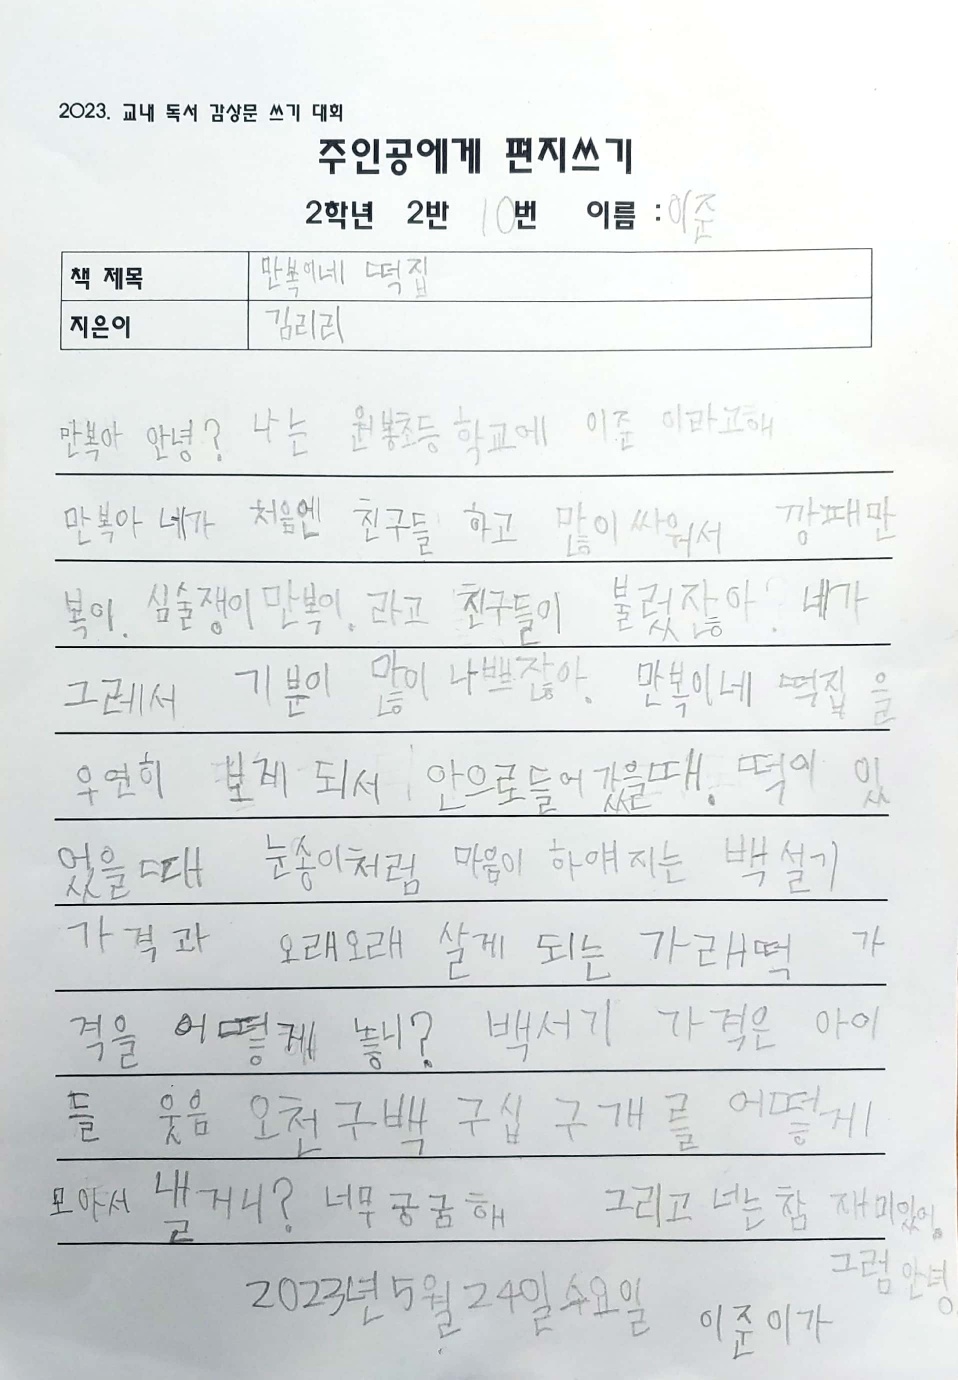 2023. 교내 독서 감상문 쓰기 대회
주인공에게 편지쓰기
2학년 2반 10번 이름 : 이준
책 제목 만복이네 떡집
지은이 김리리
만복아 안녕? 나는 원봉초등학교에 이준 이라고해
만복아 네가 처음엔 친구들 하고 많이 싸워서 깡패만
복이. 심술쟁이 만복이. 라고 친구들이 불렀잖아? 네가
그레서 기분이 많이 나쁘잖아. 만복이네 떡집 을
우연히 보게 되서 안으로 들어 갔을때. 떡이 있
었을때 눈송이처럼 마음이 하얘지는 백설기
가격과 오래오래 살게 되는 가래떡 가
격을 어떻게 놓니? 백서기 가격은 아이
들 웃음 오천 구백 구십 구개를 어떻게
모아서 낼거니? 너무 궁굼해 그리고 너는 참 재미있어.
그럼 안녕
2023년 5월 24일 수요일
이준이가